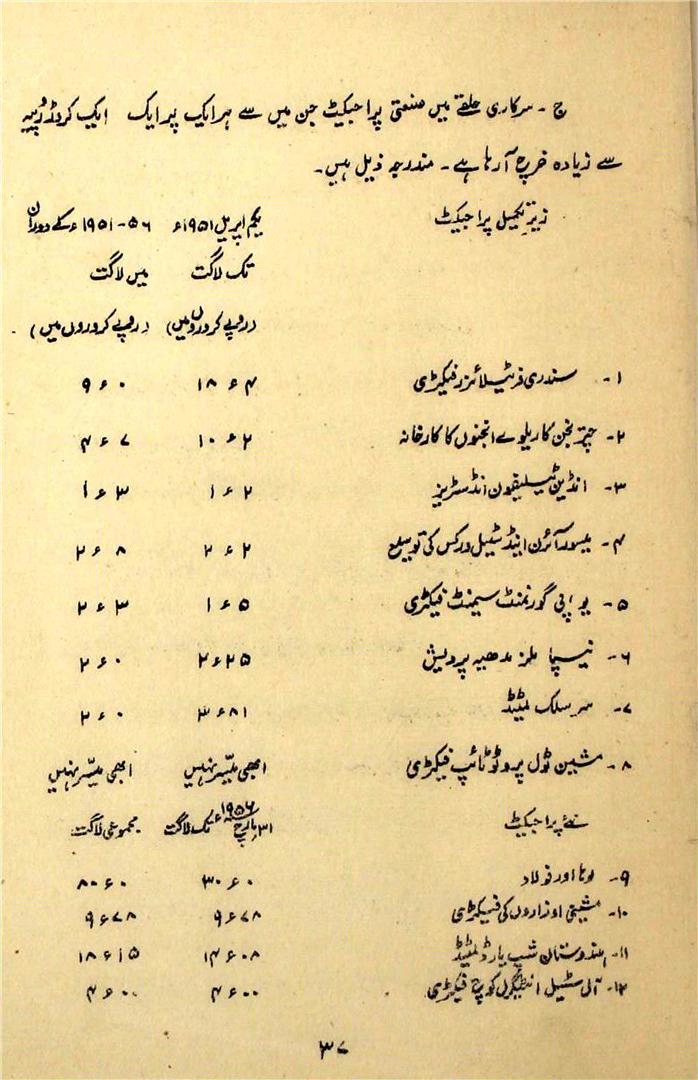 ج ۔ سرکاری حلقے میں صنعتی پراجیکٹ جن میں سے ہر ایک پر ایک ایک کروڑ روپیہ
سے زیادہ خرچ آرہا ہے ۔ مندرجہ ذیل ہیں ۔
زیر تکمیل پراجیکٹ یکم اپریل ۱۹۵۱ء ۵۶-۱۹۵۱ء کے دوران
تک لاگت میں لاگت
(روپے کروروں میں) (روپے کروروں میں)
۱- سندری فرٹیلائزر فیکڑی ۱۸ء۴ ۹ء۰
۲- چترنجن کا ریلوے انجنوں کا کارخانہ ۱۰ء۲ ۴ء۷
۳- انڈین ٹیلیفون انڈسٹریز ۱ء۲ ۱ء۳
۴- میسور آئرن اینڈ سٹیل ورکس کی توسیع ۲ء۲ ۲ء۸
۵- یو پی گورنمنٹ سیمنٹ فیکڑی ۱ء۵ ۲ء۳
۶- نیپا ملز مدھیہ پردیش ۲ء۲۵ ۲ء۰
۷- سر سلک لمٹیڈ ۳ء۸۱ ۲ء۰
۸- مشین ٹول پروٹوٹائپ فیکڑی ابھی میسّر نہیں ابھی میسّر نہیں
نئے پراجیکٹ ۳۱ مارچ ۱۹۵۶ء تک لاگت مجموعی لاگت
۹- لوہا اور فولاد ۳۰ء۰ ۸۰ء۰
۱۰- مشینی اوزاروں کی فیکڑی ۹ء۷۸ ۹ء۷۸
۱۱- ہندوستان شپ یارڈ لمٹیڈ ۱۴ء۰۸ ۱۸ء۱۵
۱۲- آل سٹیل انٹیگرل کوچ فیکڑی ۴ء۰۰ ۴ء۰۰
۳۷